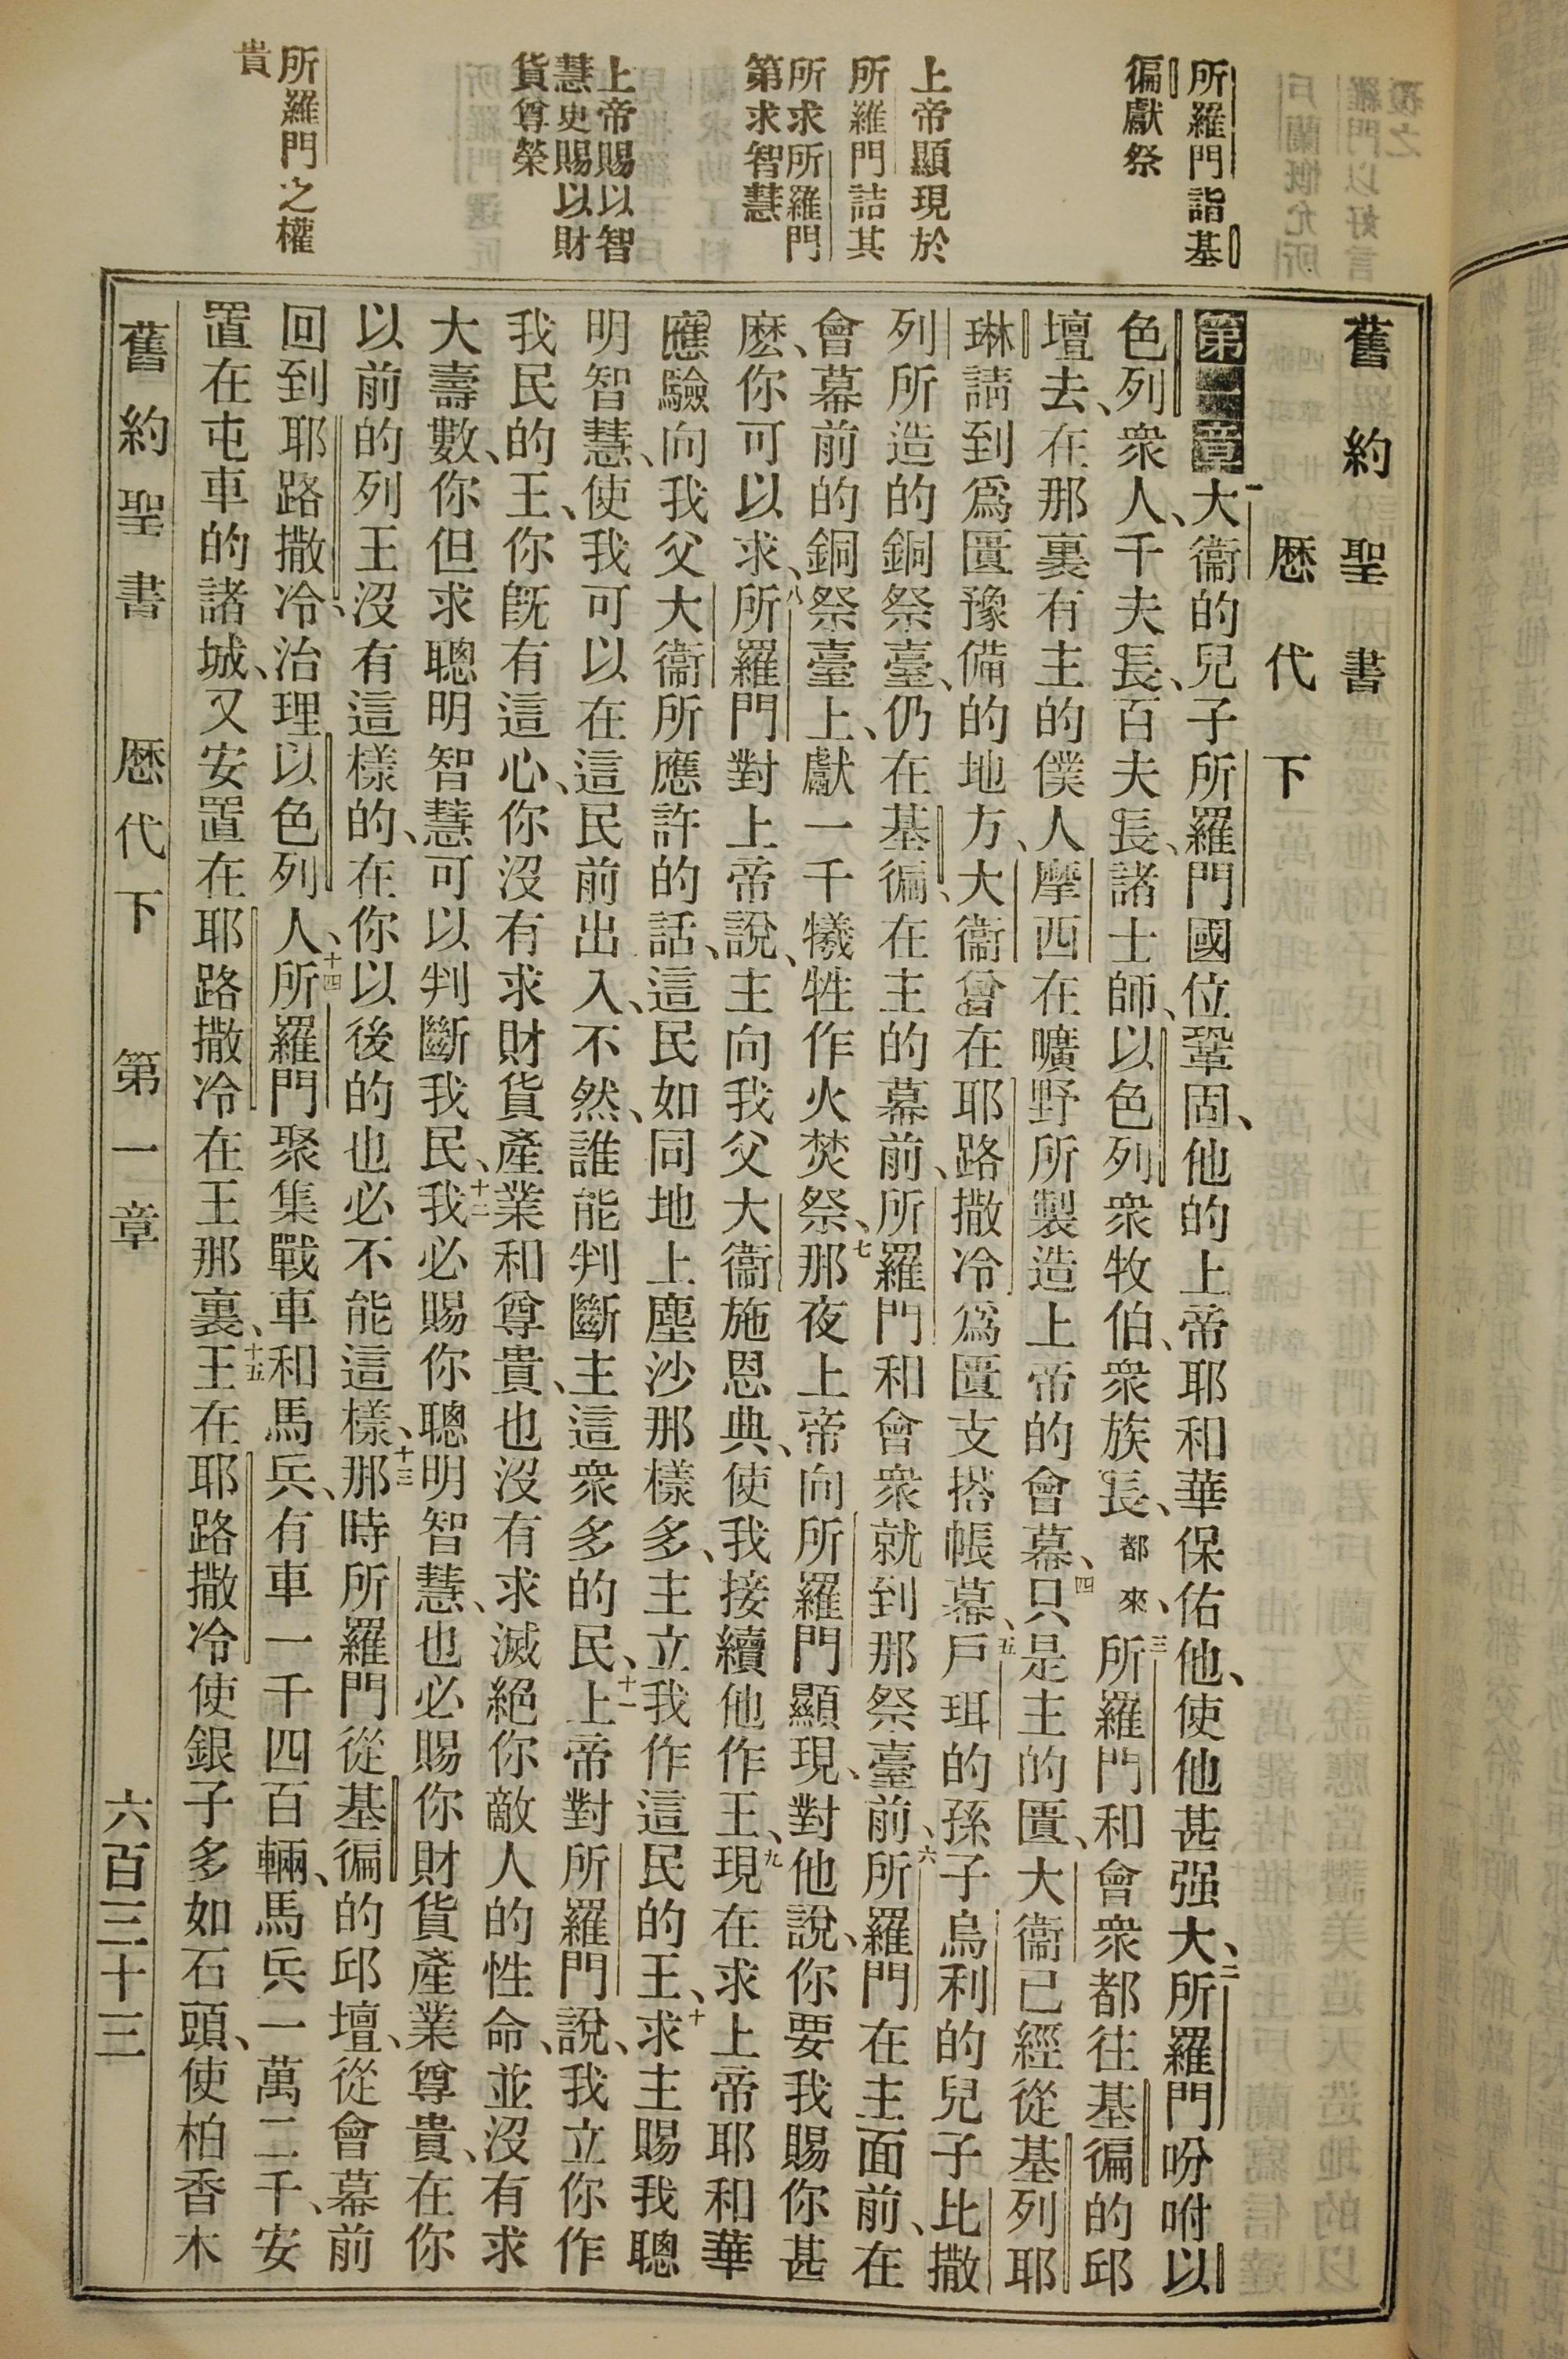 所羅門詣基
徧獻祭
上帝顯現於
所羅門詰其
所求所羅門
第求智慧
上帝賜以智
慧史賜以財
貨尊榮
所羅門之權
貴
舊約聖書
歷代下
第一章一大衞的兒子所羅門國位鞏固、他的上帝耶和華保佑他、使他甚强大、二所羅門吩咐以
色列衆人、千夫長、百夫長、諸士師、以色列衆牧伯、衆族長、都來、三所羅門和會衆都往基徧的邱
壇去、在那裏有主的僕人摩西在曠野所製造上帝的會幕、四只是主的匱、大衞已經從基列耶
琳請到爲匱豫備的地方、大衞曾在耶路撒冷爲匱支搭帳幕、五戶珥的孫子烏利的兒子比撒
列所造的銅祭臺、仍在基徧、在主的幕前、所羅門和會衆就到那祭臺前、六所羅門在主面前、在
會幕前的銅祭臺上、獻一千犧牲作火焚祭、七那夜上帝向所羅門顯現、對他說、你要我賜你甚
麽、你可以求、八所羅門對上帝說、主向我父大衞施恩典、使我接續他作王、九現在求上帝耶和華
應驗向我父大衞所應許的話、這民如同地上塵沙那樣多、主立我作這民的王、十求主賜我聰
明智慧、使我可以在這民前出入、不然、誰能判斷主這衆多的民、十一上帝對所羅門說、我立你作
我民的王、你旣有這心、你沒有求財貨產業和尊貴、也沒有求滅絕你敵人的性命、並沒有求
大壽數、你但求聰明智慧、可以判斷我民、十二我必賜你聰明智慧、也必賜你財貨產業尊貴、在你
以前的列王沒有這樣的、在你以後的也必不能這樣、十三那時所羅門從基徧的邱壇、從會幕前
回到耶路撒冷、治理以色列人、十四所羅門聚集戰車和馬兵、有車一千四百輛、馬兵一萬二千、安
置在屯車的諸城、又安置在耶路撒冷在王那裏、十五王在耶路撒冷使銀子多如石頭、使柏香木
舊約聖書　歷代下　第一章　六百三十三